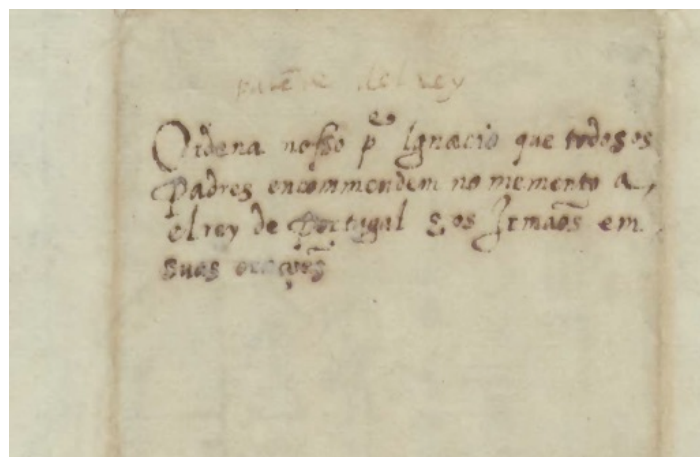 patẽte del rey
Ordena nosso pe Ignacio que todos os
Padres encommendem no memento a,
el rey de Portugal & os Irmãos em
suas orações